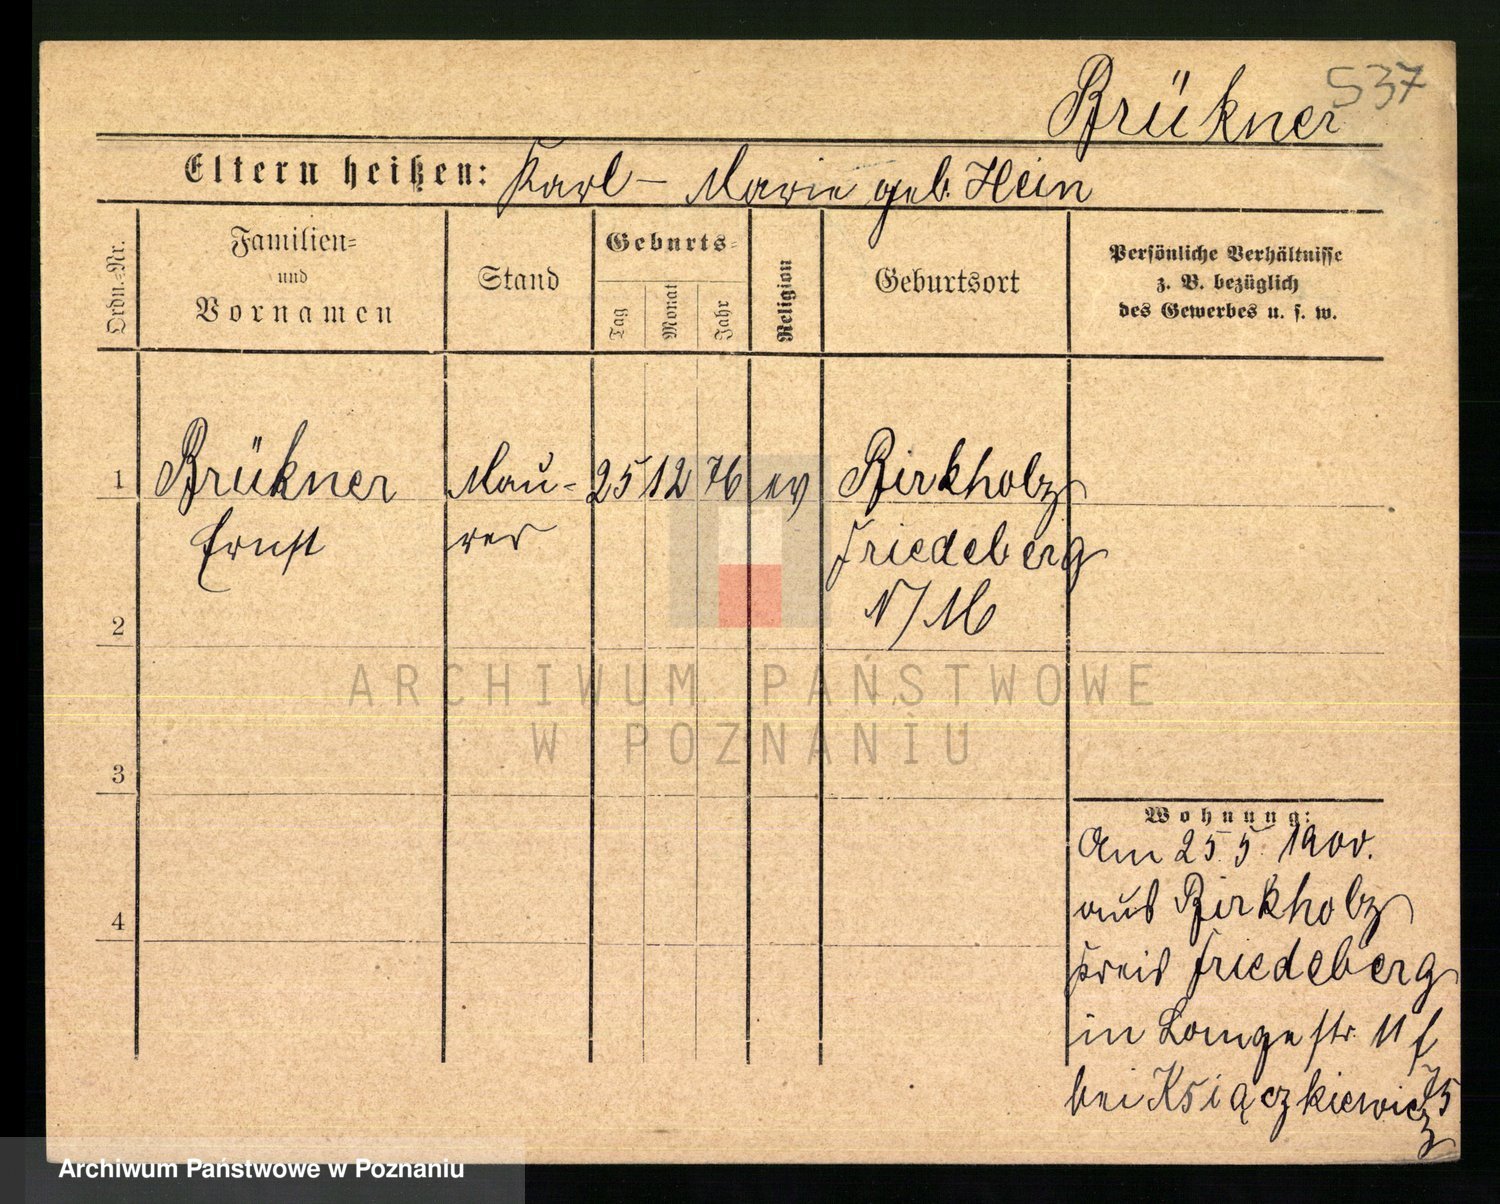 537
Brükner
Eltern heißen: Karl – Marie geb. Hein
Ordn.-Nr.
Familien-
und
Vornamen
Stand
Geburts-
Tag
Monat
Jahr
Religion
Geburtsort
Persönliche Verhältnisse
z. B. bezüglich
des Gewerbes u. s. w.
1 Brükner Mau- 25 12 76 ev Birkholz
Ernst rer Friedeberg
2 N/M
ARCHIWUM PAŃSTWOWE
W POZNANIU
3
4
Wohnung:
Am 25. 5. 1900.
aus Birkholz
Kreis Friedeberg
in Lange str. 11 f
bei Książkiewicz
75
Archiwum Państwowe w Poznaniu